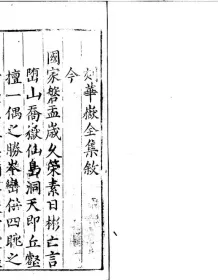 刻華嶽全集敘
今
國家磐盂歲久策素日彬亡言
嶞山喬嶽仙島洞天即丘壑
擅一偶之勝峯巒供四眺之